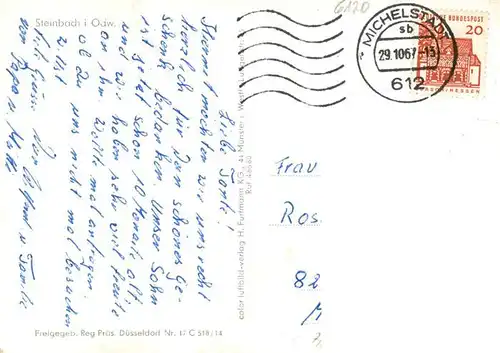 Steinbach i Odw.
6120
Liebe Tante!
Hiermit möchten wir uns recht
herzlich für dein schönes Ge-
schenk bedanken. Unser Sohn
ist jetzt schon 10 Monate alt
und wir haben sehr viel Freude
an ihm. Wollte mal anfragen
ob du uns nicht mal besuchen
willst.
u. Familie
von Papa u. Mutti
color luftbild-verlag H. Furtmann KG., 44 Münster i. Westf.
Ruf 46660
Freigegeb. Reg Präs. Düsseldorf Nr. 17 C 518/14
MICHELSTADT
sb
29.10.67-15
612
DEUTSCHE BUNDESPOST
20
Frau
Ros
82